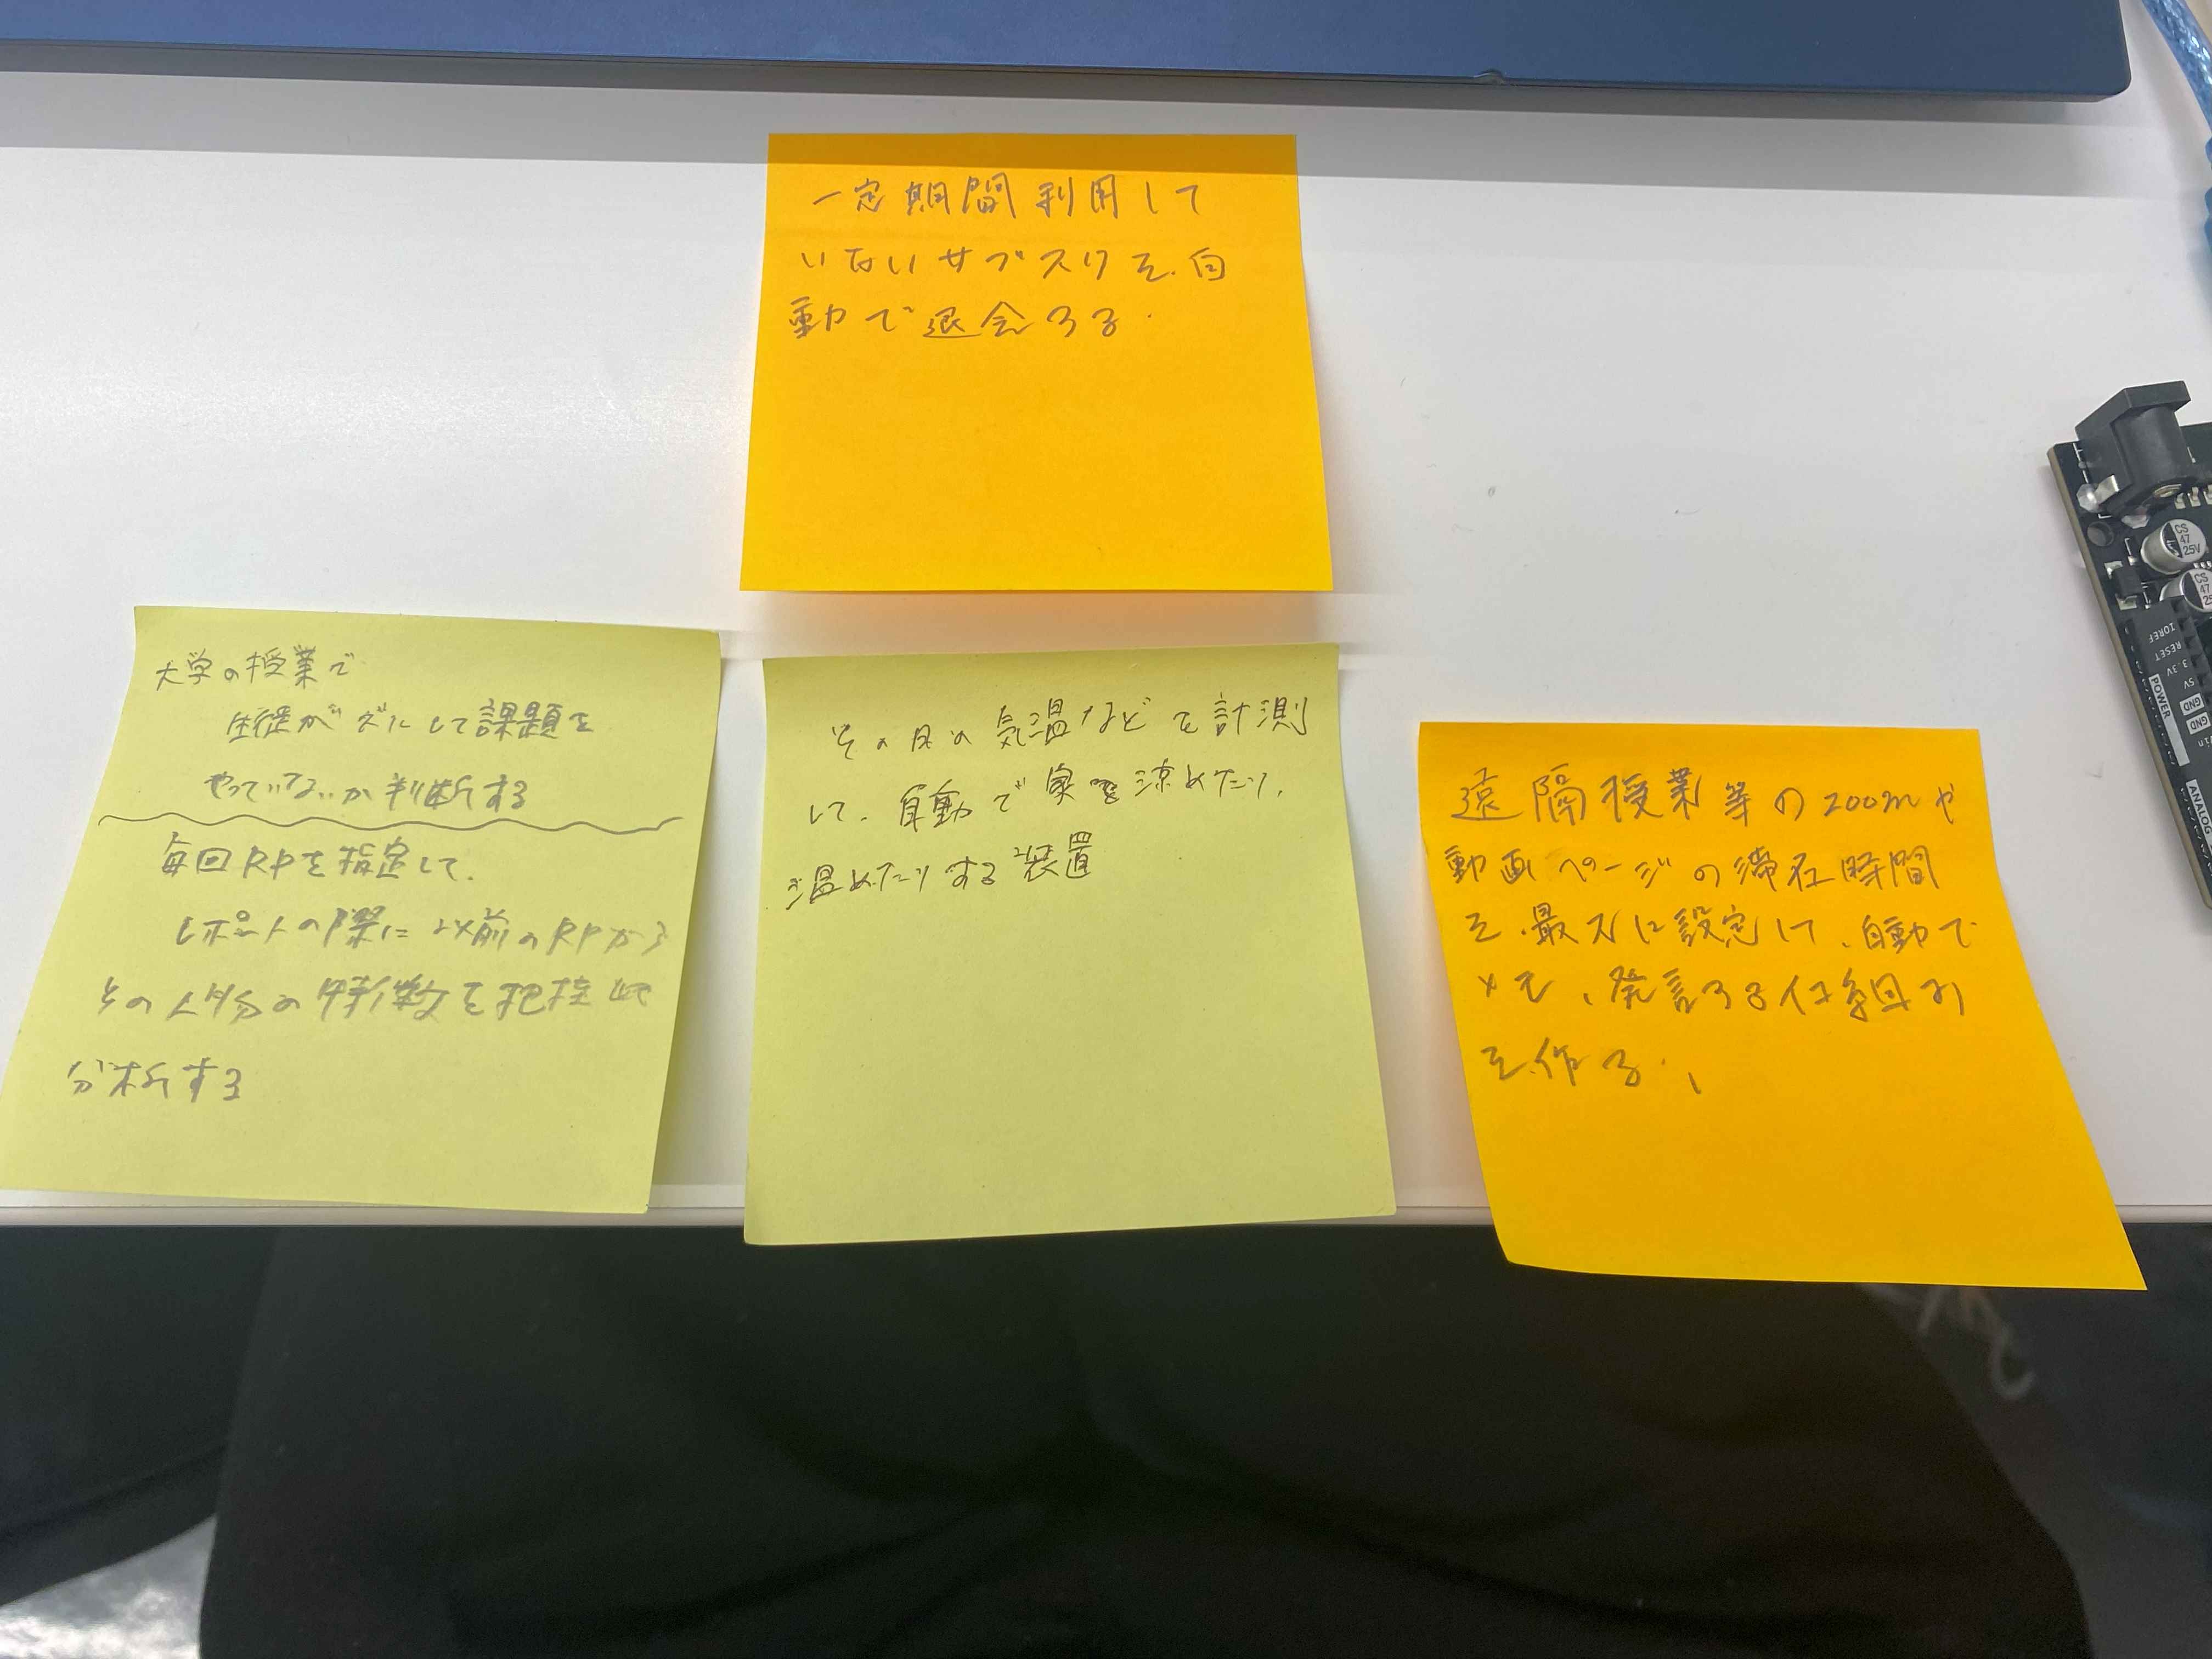 一定期間利用して
いないサブスクを、自
動で退会する.
大学の授業で
生徒がズルして課題を
やっていないか判断する
毎回RPを指定して、
レポートの際に以前のRPから
その人物の特徴を把握し
分析する
その日の気温などを計測
して、自動で家を涼めたり、
温めたりする装置
遠隔授業等のzoomや
動画ページの滞在時間
を、最大に設定して、自動で
メモ、発言する仕組み
を作る.、
CS
47
25V
CS
47
25
IOREF
RESET
3.3V
5V
GND
GND
Vin
POWER
ANALOG